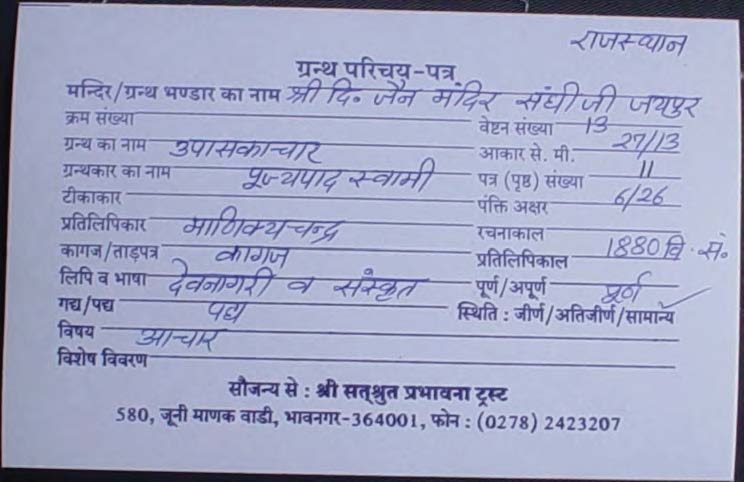 राजस्थान
ग्रन्थ परिचय-पत्र
मन्दिर/ग्रन्थ भण्डार का नाम श्री दि. जैन मंदिर संघीजी जयपुर
क्रम संख्या वेष्टन संख्या 13
ग्रन्थ का नाम उपासकाचार आकार से. मी. 27/13
ग्रन्थकार का नाम पूज्यपाद स्वामी पत्र (पृष्ठ) संख्या 11
टीकाकार पंक्ति अक्षर 6/26
प्रतिलिपिकार माणिक्यचन्द्र रचनाकाल
कागज/ताड़पत्र कागज प्रतिलिपिकाल 1880 वि. सं.
लिपि व भाषा देवनागरी व संस्कृत पूर्ण/अपूर्ण पूर्ण
गद्य/पद्य पद्य स्थिति : जीर्ण/अतिजीर्ण/सामान्य ✓
विषय आचार
विशेष विवरण
सौजन्य से : श्री सत्श्रुत प्रभावना ट्रस्ट
580, जूनी माणक वाडी, भावनगर-364001, फोन : (0278) 2423207